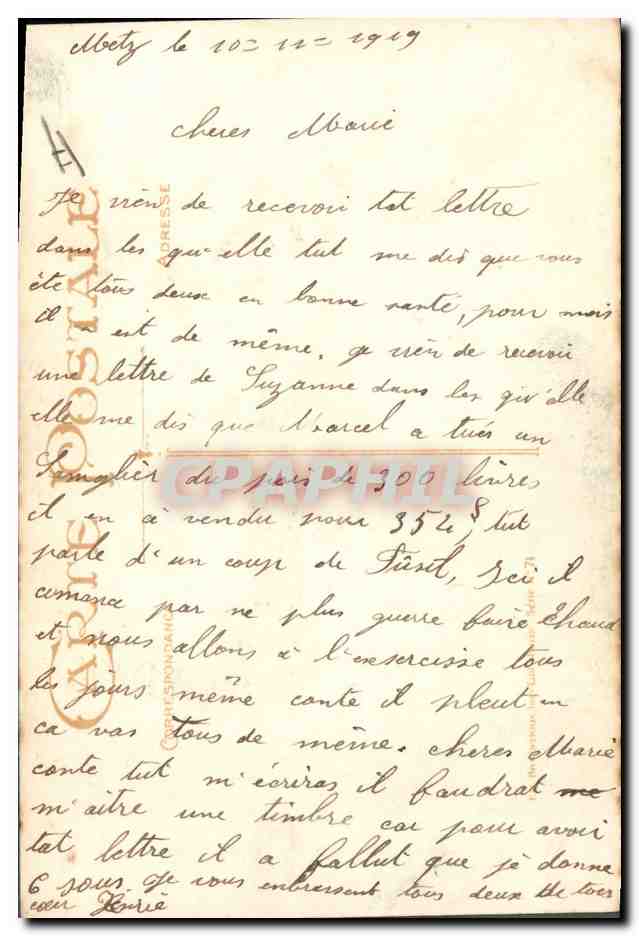 Metz le 10 = 11 = 1919
cheres Marie
Je vien de recevoir tat lettre
dans les qu'elle tut me dis que vous
ête tous deux en bonne santé, pour mois
il est de même. Je vién de recevoir
une lettre de Suzanne dans les qu'elle
elle me dis que Marcel a tués un
Senglier du pois de 300 livres
il en à vendu pour 354 f, tut
parle d'un coup de Fûsil, Ici il
comance par ne plus guerre faire chaud
et nous allons à l'exsercisse tous
les jours même conte il pleut en
ca vas tous de même. cheres Marie
conte tut m'écriras il faudrat me
m'aitre une timbre car pour avoir
tat lettre il a fallut que je donne
6 sous. Je vous enbrassent tous deux de tous
cœur Henrie
CARTE POSTALE
CORRESPONDANCE
ADRESSE
CPAPHIL